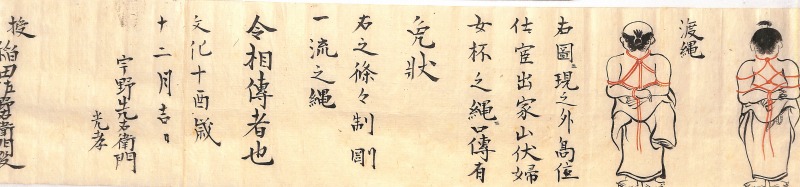 渡縄
右圖現之外髙位
仕官出家山伏婦
女杯之縄口傳有
免状
右之條々制剛
一流之縄
令相傳者也
文化十酉歳
十二月吉日
宇野先右衛門
光孝
授
稲田
衛門殿